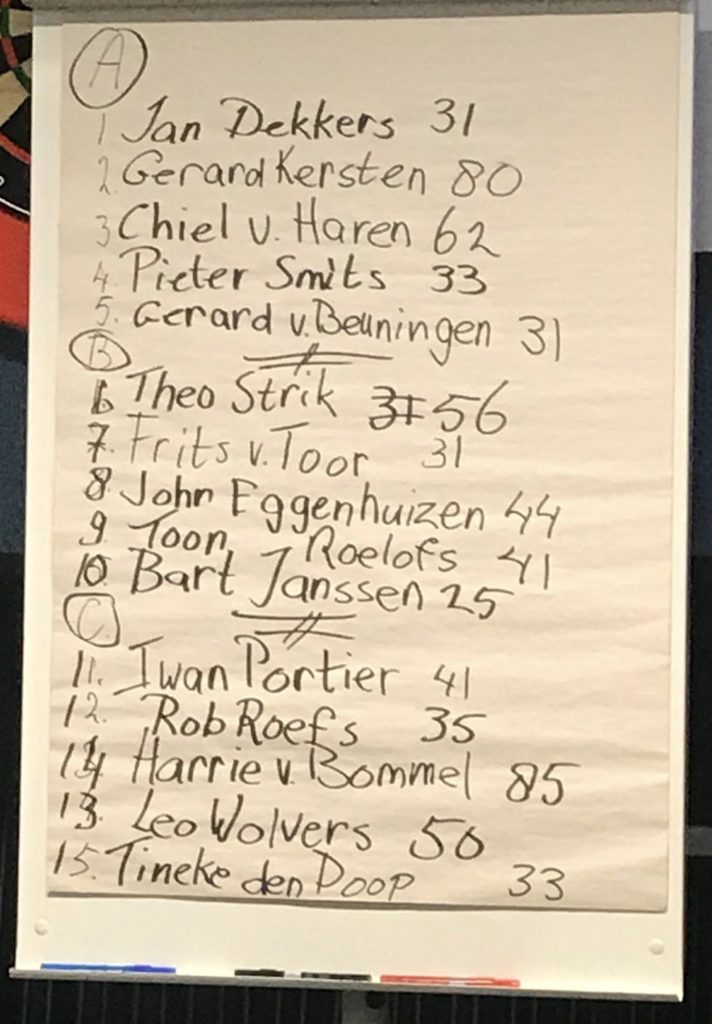 A
1 Jan Dekkers 31
2. Gerard Kersten 80
3 Chiel v. Haren 62
4. Pieter Smits 33
5. Gerard v. Beuningen 31
B
6 Theo Strik 31 56
7. Frits v. Toor 31
8. John Eggenhuizen 44
9 Toon Roelofs 41
10. Bart Janssen 25
C.
11. Iwan Portier 41
12. Rob Roefs 35
14 Harrie v. Bommel 85
13. Leo Wolvers 50
15. Tineke den Doop 33